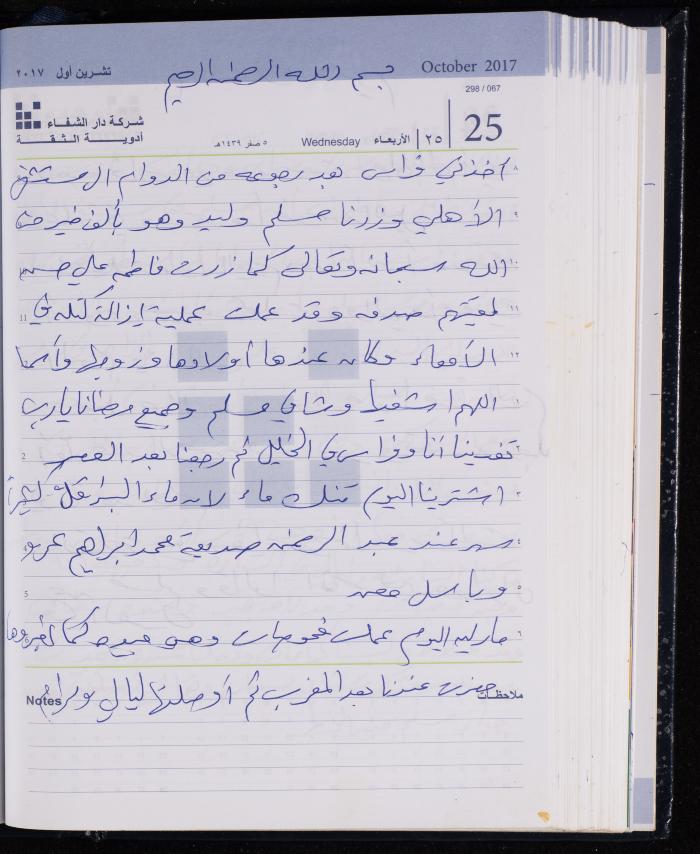 تشرين أول ٢٠١٧
بسم الله الرحمن الرحيم
October 2017
298 / 067
شركة دار الشفاء
أدوية الثقة
٥ صفر ١٤٣٩هـ
Wednesday
الأربعاء
٢٥
25
أخذني فراس بعد رجوعه من الدوام الى مستشفى
الأهلي وزرنا مسلم وليد وهو بألف خير من
الله سبحانه وتعالى كما زرت فاطمة علي
لقيتهم صدفه وقد عملت عملية إزالة كتله في
الأمعاء وكان عندها أولادها وزوجها وأسما
اللهم اشفيها وشافي مسلم وجميع مرضانا يارب
تغدينا أنا وفراس في الخليل ثم رجعنا بعد العصر
اشترينا اليوم تنك ماء لان ماء البئر قل كثيراً
سهر عند عبد الرحمن صديقه محمد ابراهيم عمرو
وباسل
ماريه اليوم عملت فحوصات وهي جيده كما
حضرت عندنا بعد المغرب ثم أوصلتها ليالي
ملاحظات
Notes